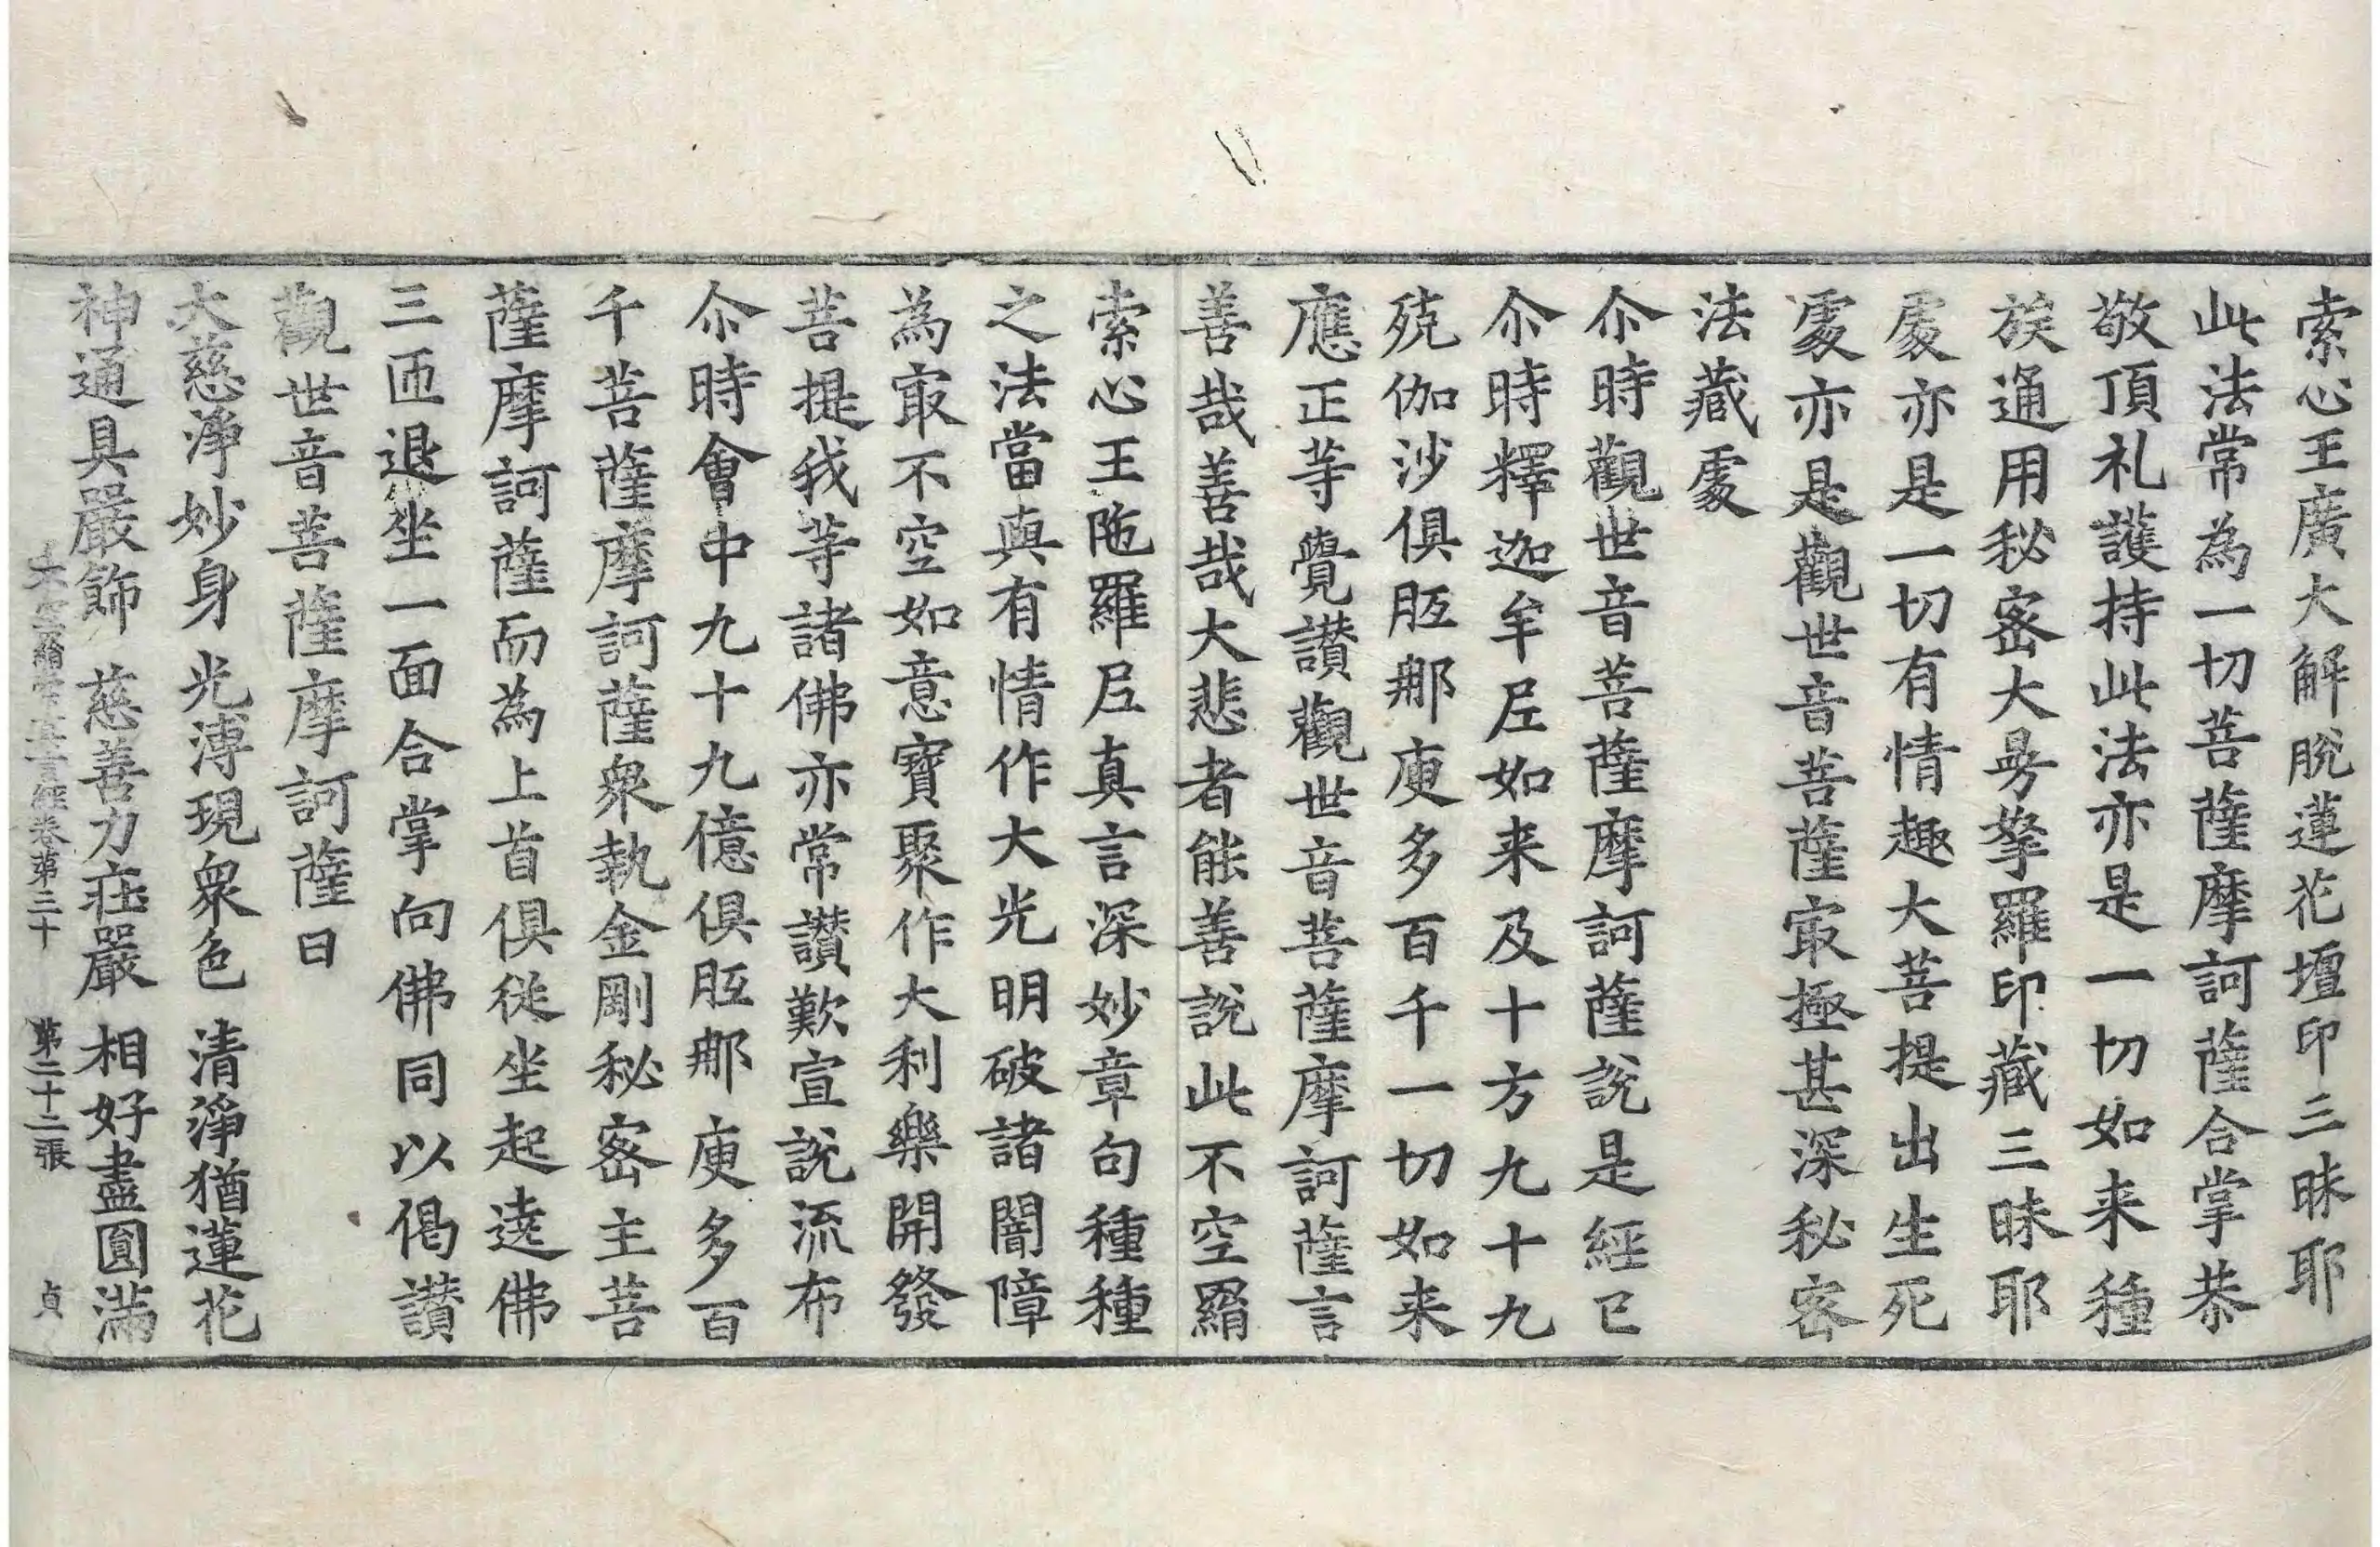 索心王廣大解脫蓮花壇印三昧耶
此法常為一切菩薩摩訶薩合掌恭
敬頂礼護持此法亦是一切如来種
族通用秘密大㝵拏羅印藏三昧耶
處亦是一切有情趣大菩提出生死
處亦是觀世音菩薩冣極甚深秘密
法藏處
尒時觀世音菩薩摩訶薩說是經已
尒時釋迦牟尼如来及十方九十九
殑伽沙俱胝那庾多百千一切如来
應正等覺讃觀世音菩薩摩訶薩言
善哉善哉大悲者能善說此不空羂
索心王陁羅尼真言深妙章句種種
之法當與有情作大光明破諸闇障
為冣不空如意寶聚作大利樂開發
菩提我等諸佛亦常讃歎宣說流布
尒時會中九十九億俱胝那庾多百
千菩薩摩訶薩衆執金剛秘密主菩
薩摩訶薩而為上首俱從坐起遶佛
三匝退坐一面合掌向佛同以偈讃
觀世音菩薩摩訶薩曰
大慈淨妙身 光溥現衆色 清淨猶蓮花
神通具嚴飾 慈善力莊嚴 相好盡圓滿
不空羂索真言經卷第三十 第二十二張 貞